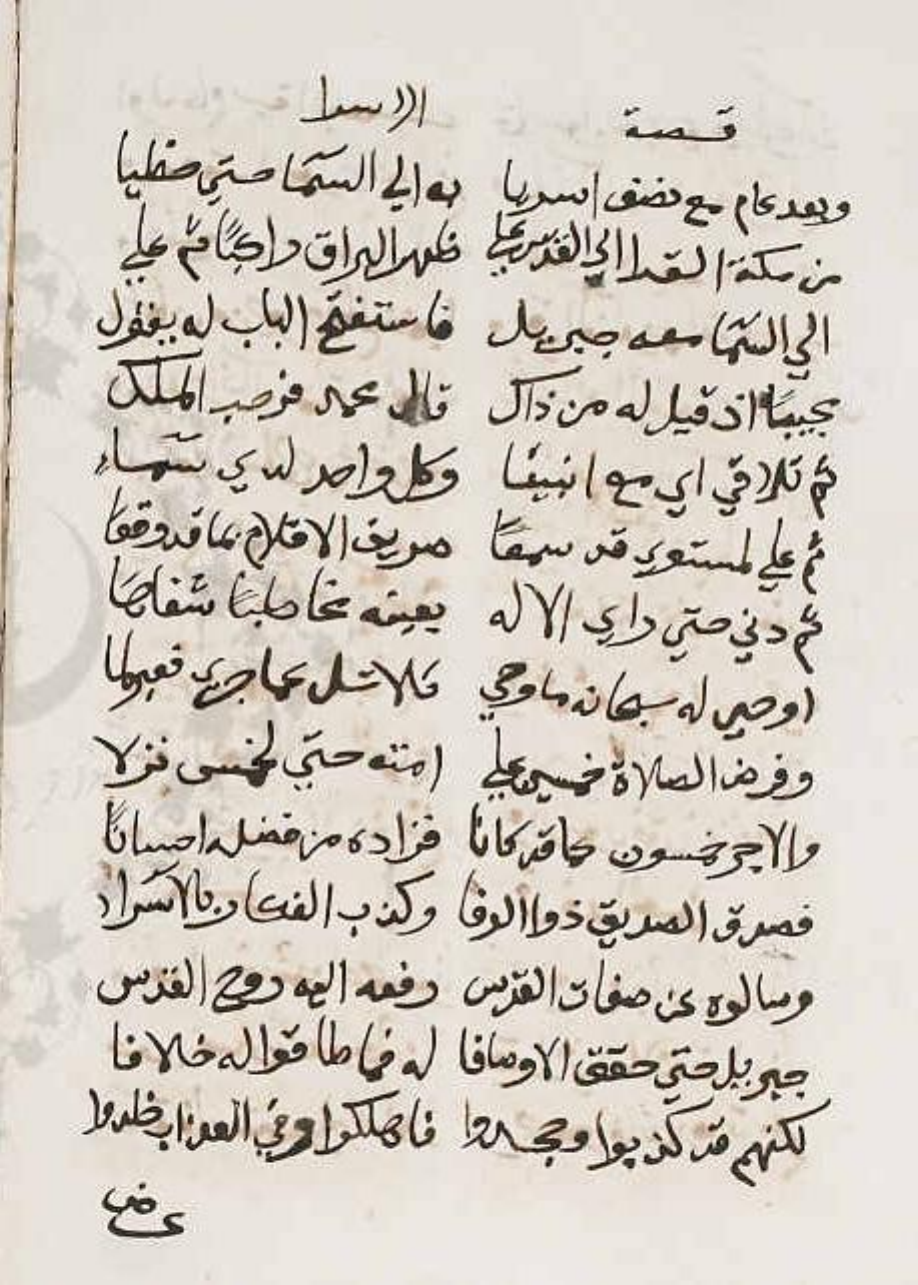 قصة الاسرا
وبعد عام مع نصف اسريا به الي السما حتي حظيا
من مكة الغرا الي القدس علي ظهر البراق راكبا ثم علي
الي السما معه جبريل فاستفتح الباب له يقول
مجيبا اذ قيل له من ذاك قال محمد فرحب الملك
ثم تلاقي اي مع انبيا وكل واحد لدي سماء
ثم علي لمستوي قد سمعا صريف الاقلام بما قد وقعا
ثم دني حتي راي الاله بعينه مخاطبا شفاها
اوحي له سبحانه ما وحي فلا تسل عما جري
وفرض الصلاة خمسين علي امته حتي لخمس نزلا
والاجر خمسون كما قد كانا فزاده من فضله احسانا
فصدق الصديق ذوا الوفا وكذب الكفار بالاسراء
وسالوه عن صفات القدس رفعه اليه روح القدس
جبريل حتي حقق الاوصافا له فما طاقوا له خلافا
لكنهم قد كذبوا وجحدوا فاهلكوا وفي العذاب خلدوا